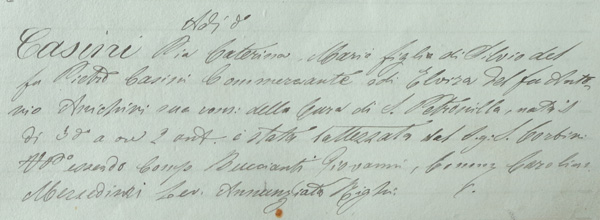 Adì d°
Casini Pia Caterina Maria figlia di Silvio del
fu Pietro Casini Commerciante e di Elvira del fu Anto
nio Anichini sua cons. della Cura di S. Petronilla, nata il
dì 3 d° a ore 2 ant. è stata battezzata dal Sig. S. Corbini
essendo Comp. Buccianti Giovanni, Comare Carolina
Lev. Annunziata Righi.